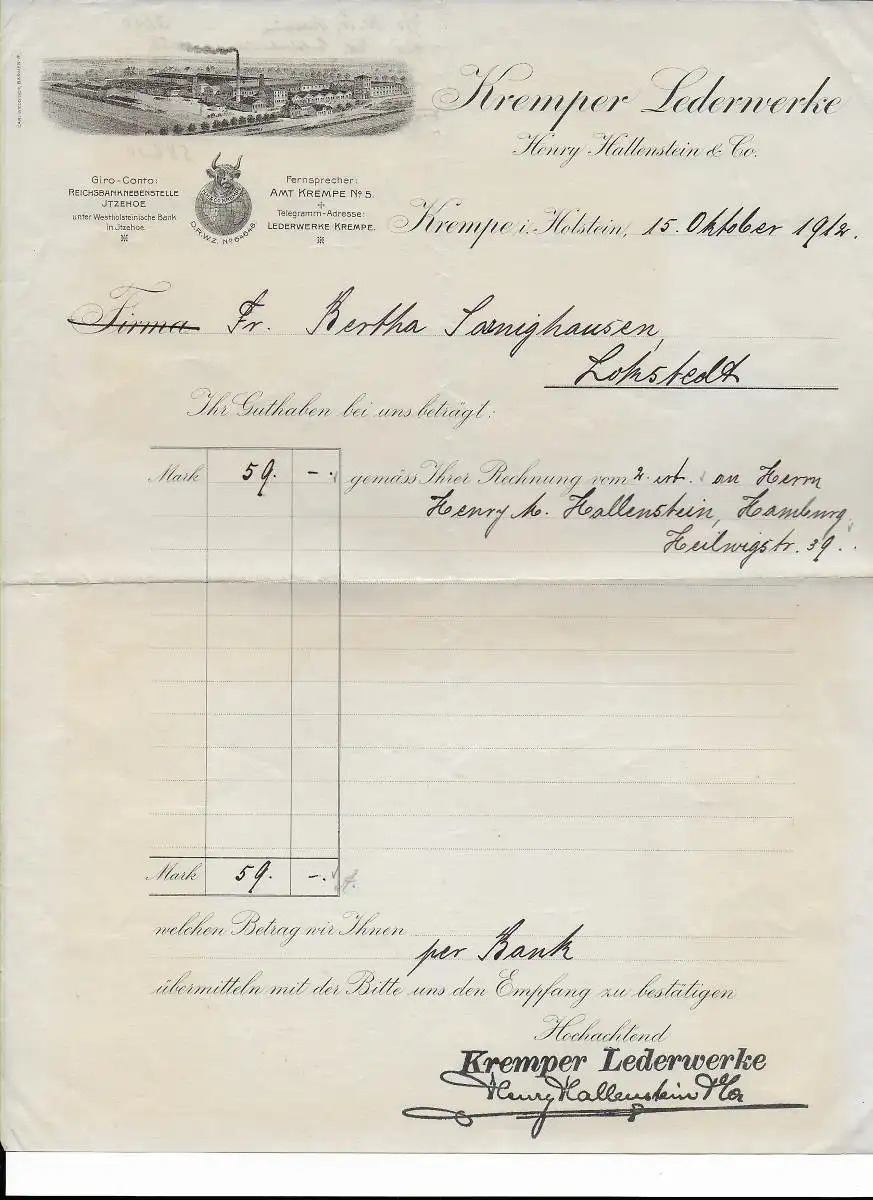 Kremper Lederwerke
Henry Hallenstein & Co.
Giro-Conto:
REICHSBANKNEBENSTELLE
JTZEHOE
unter Westholsteinische Bank
in Jtzehoe.
D.R.W.Z. No 64648.
Fernsprecher:
AMT KREMPE No 5.
Telegramm-Adresse:
LEDERWERKE KREMPE.
Krempe i. Holstein, 15. Oktober 1912.
Firma Fr. Bertha Sarnighausen,
Lokstedt
Ihr Guthaben bei uns beträgt:
Mark 59. -. gemäss Ihrer Rechnung vom 2. crt. an Herrn
Henry M. Hallenstein, Hamburg,
Heilwigstr. 39.
Mark 59. -.
welchen Betrag wir Ihnen per Bank
übermitteln mit der Bitte uns den Empfang zu bestätigen
Hochachtend
Kremper Lederwerke
Henry Hallenstein & Co